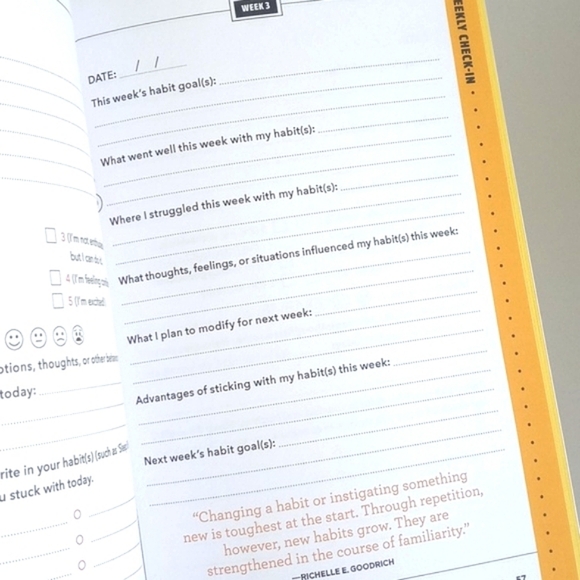 3 (I'm not
but I can do it.
4 (I'm feeling
5 (I'm excited!
otions, thoughts, or other
today:
rite in your habit(s) (such as
u stuck with today.
WEEK 3
DATE: / /
This week's habit goal(s):
What went well this week with my habit(s):
Where I struggled this week with my habit(s):
What thoughts, feelings, or situations influenced my habit(s) this week:
What I plan to modify for next week:
Advantages of sticking with my habit(s) this week:
Next week's habit goal(s):
“Changing a habit or instigating something
new is toughest at the start. Through repetition,
however, new habits grow. They are
strengthened in the course of familiarity.”
—RICHELLE E. GOODRICH
57
EEKLY CHECK-IN